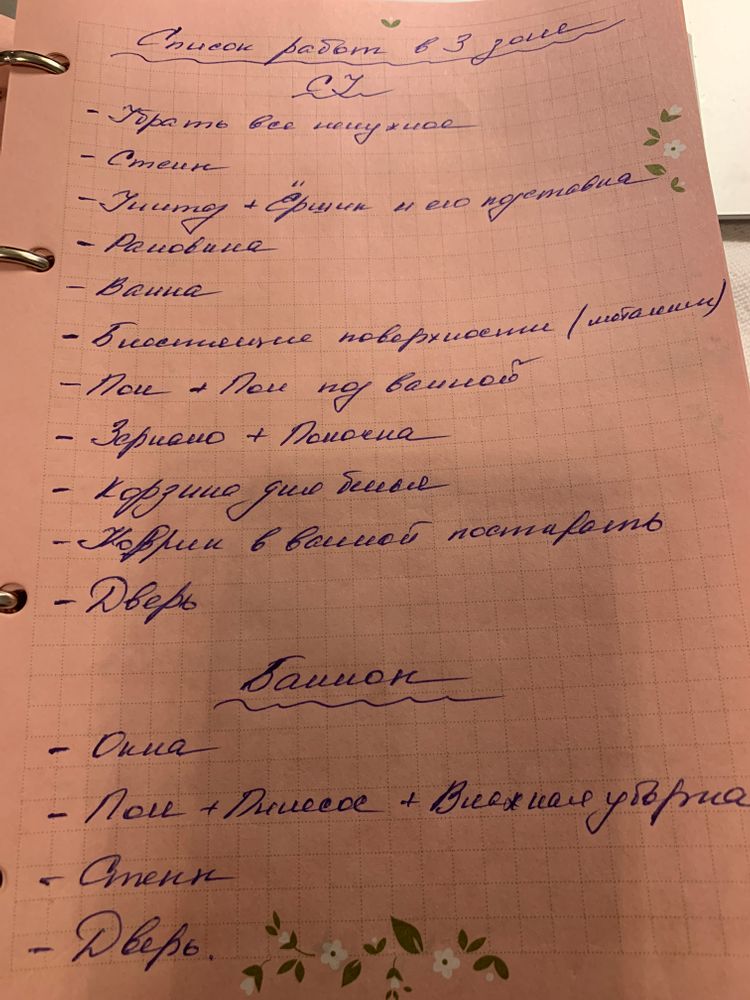 Список работ в 3 зоне
СУ
- Убрать все ненужное
- Стены
- Унитаз + Ёршик и его подставка
- Раковина
- Ванна
- Блестящие поверхности (металлич)
- Пол + Пол под ванной
- Зеркало + Полочка
- Корзина для белья
- Коврик в ванной постирать
- Дверь
Балкон
- Окна
- Пол + Пылесос + Влажная уборка
- Стены
- Дверь.